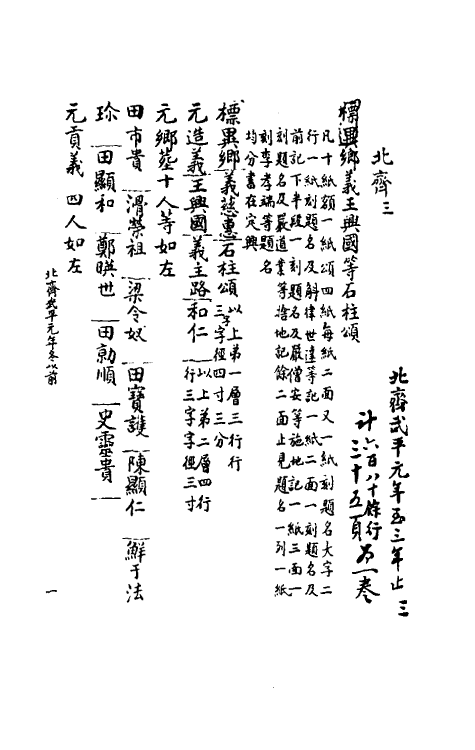 北齊武平元年至三年止 三
计六百八十餘行
三十五頁 为一卷
北齊三
標異鄉義王興國等石柱頌
凡十紙額一紙頌四紙每紙二面又一紙刻題名大字二
行一紙刻題名及斛律世達等記一紙二面一刻題名及
前記下半段一刻題名及嚴僧安等施地記一紙三面一
刻題名及嚴道業等捨地記餘二面止見題名一列一紙
刻李孝端等題名
均分書在定興
標異鄉義慈惠石柱頌 以上第一層三行行三字字徑四寸三分
元造義王興國義主路和仁 以上第二層四行行三字字徑三寸
元鄉葬十人等如左
田市貴 滑榮祖 梁令奴 田寶護 陳顯仁 鮮于法
珍 田顯和 鄭暎世 田勍順 史靈貴
元貢義 四人如左
北齊武平元年冬以前 一